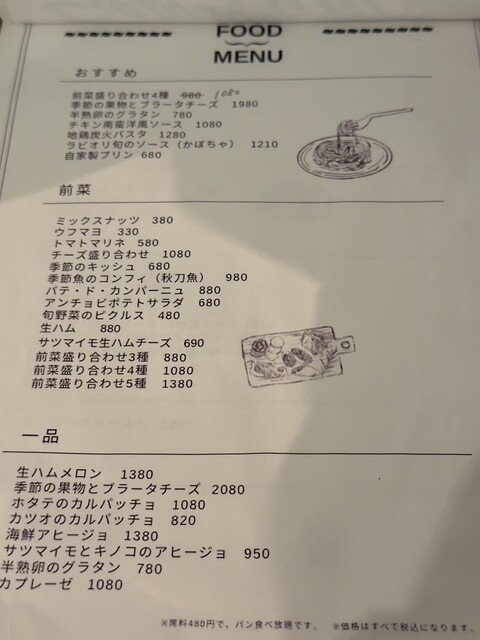 FOOD
MENU
おすすめ
前菜盛り合わせ4種 980 1080
季節の果物とブラータチーズ 1980
半熟卵のグラタン 780
チキン南蛮洋風ソース 1080
地鶏炭火パスタ 1280
ラビオリ旬のソース（かぼちゃ） 1210
自家製プリン 680
前菜
ミックスナッツ 380
ウフマヨ 330
トマトマリネ 580
チーズ盛り合わせ 1080
季節のキッシュ 680
季節魚のコンフィ（秋刀魚） 980
パテ・ド・カンパーニュ 880
アンチョビポテトサラダ 680
旬野菜のピクルス 480
生ハム 880
サツマイモ生ハムチーズ 690
前菜盛り合わせ3種 880
前菜盛り合わせ4種 1080
前菜盛り合わせ5種 1380
一品
生ハムメロン 1380
季節の果物とブラータチーズ 2080
ホタテのカルパッチョ 1080
カツオのカルパッチョ 820
海鮮アヒージョ 1380
サツマイモとキノコのアヒージョ 950
半熟卵のグラタン 780
カプレーゼ 1080
※席料480円で、パン食べ放題です。 ※価格はすべて税込になります。